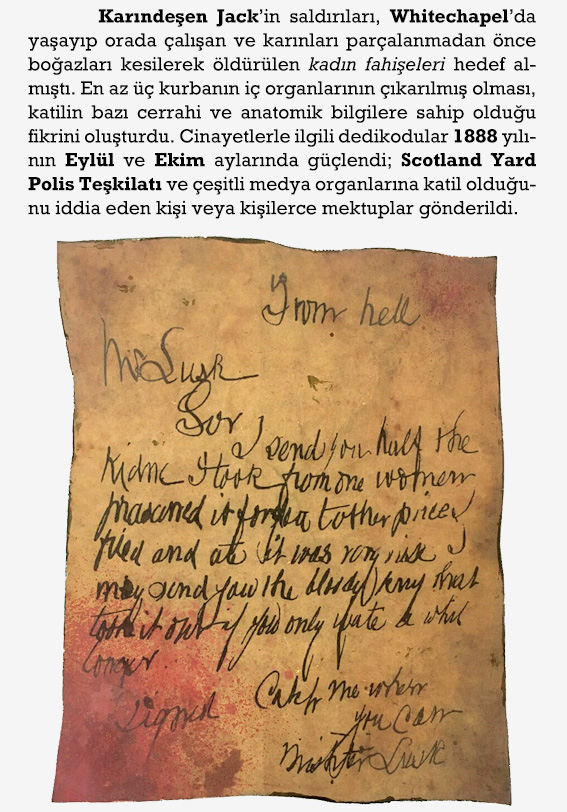 Karındeşen Jack'in saldırıları, Whitechapel'da
yaşayıp orada çalışan ve karınları parçalanmadan önce
boğazları kesilerek öldürülen kadın fahişeleri hedef al-
mıştı. En az üç kurbanın iç organlarının çıkarılmış olması,
katilin bazı cerrahi ve anatomik bilgilere sahip olduğu
fikrini oluşturdu. Cinayetlerle ilgili dedikodular 1888 yılı-
nın Eylül ve Ekim aylarında güçlendi; Scotland Yard
Polis Teşkilatı ve çeşitli medya organlarına katil olduğu-
nu iddia eden kişi veya kişilerce mektuplar gönderildi.
From hell
Mr Lusk
Sor
I send you half the
Kidne I took from one women
prasarved it for you tother piece I
fried and ate it was very nise I
may send you the bloody knif that
took it out if you only wate a whil
longer
signed
Catch me when
you can
Mishter Lusk